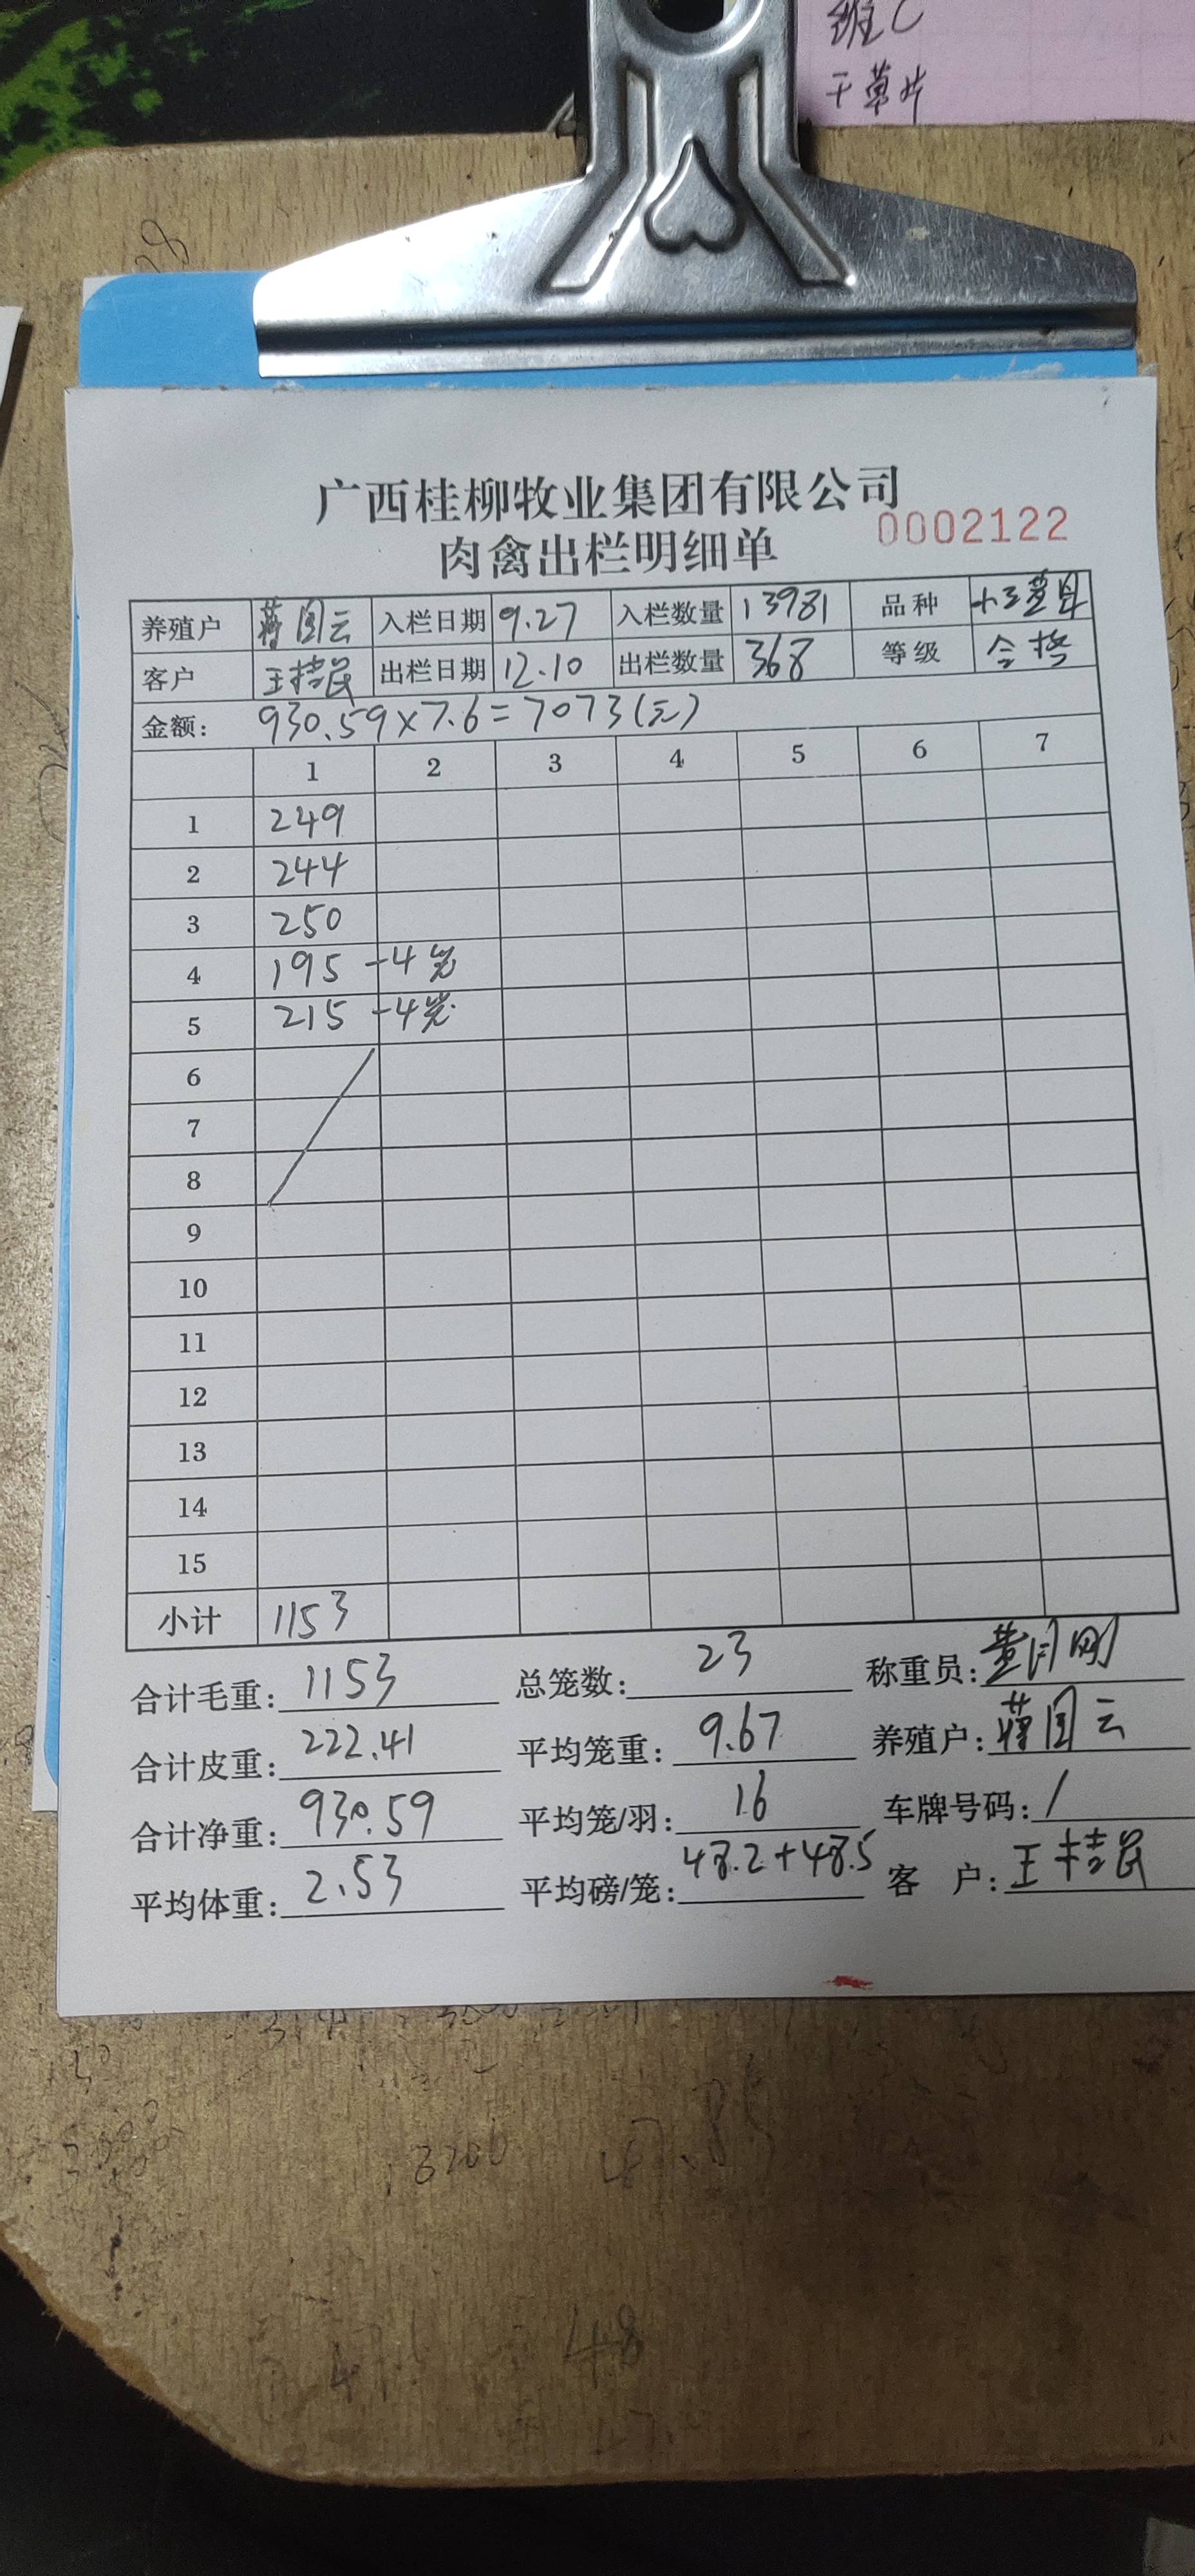 班C
干草片
28
广西桂柳牧业集团有限公司
肉禽出栏明细单 0002122
养殖户 蒋国云 入栏日期 9.27 入栏数量 13981 品种
客户 王桂民 出栏日期 12.10 出栏数量 368 等级 合格
金额: 930.59×7.6=7073(元)
1 2 3 4 5 6 7
1 249
2 244
3 250
4 195 -4笼
5 215 -4笼
6
7
8
9
10
11
12
13
14
15
小计 1153
合计毛重: 1153 总笼数: 23 称重员:
合计皮重: 222.41 平均笼重: 9.67 养殖户: 蒋国云
合计净重: 930.59 平均笼/羽: 16 车牌号码: /
平均体重: 2.53 平均磅/笼: 48.2+48.5 客 户: 王桂民
3200
48